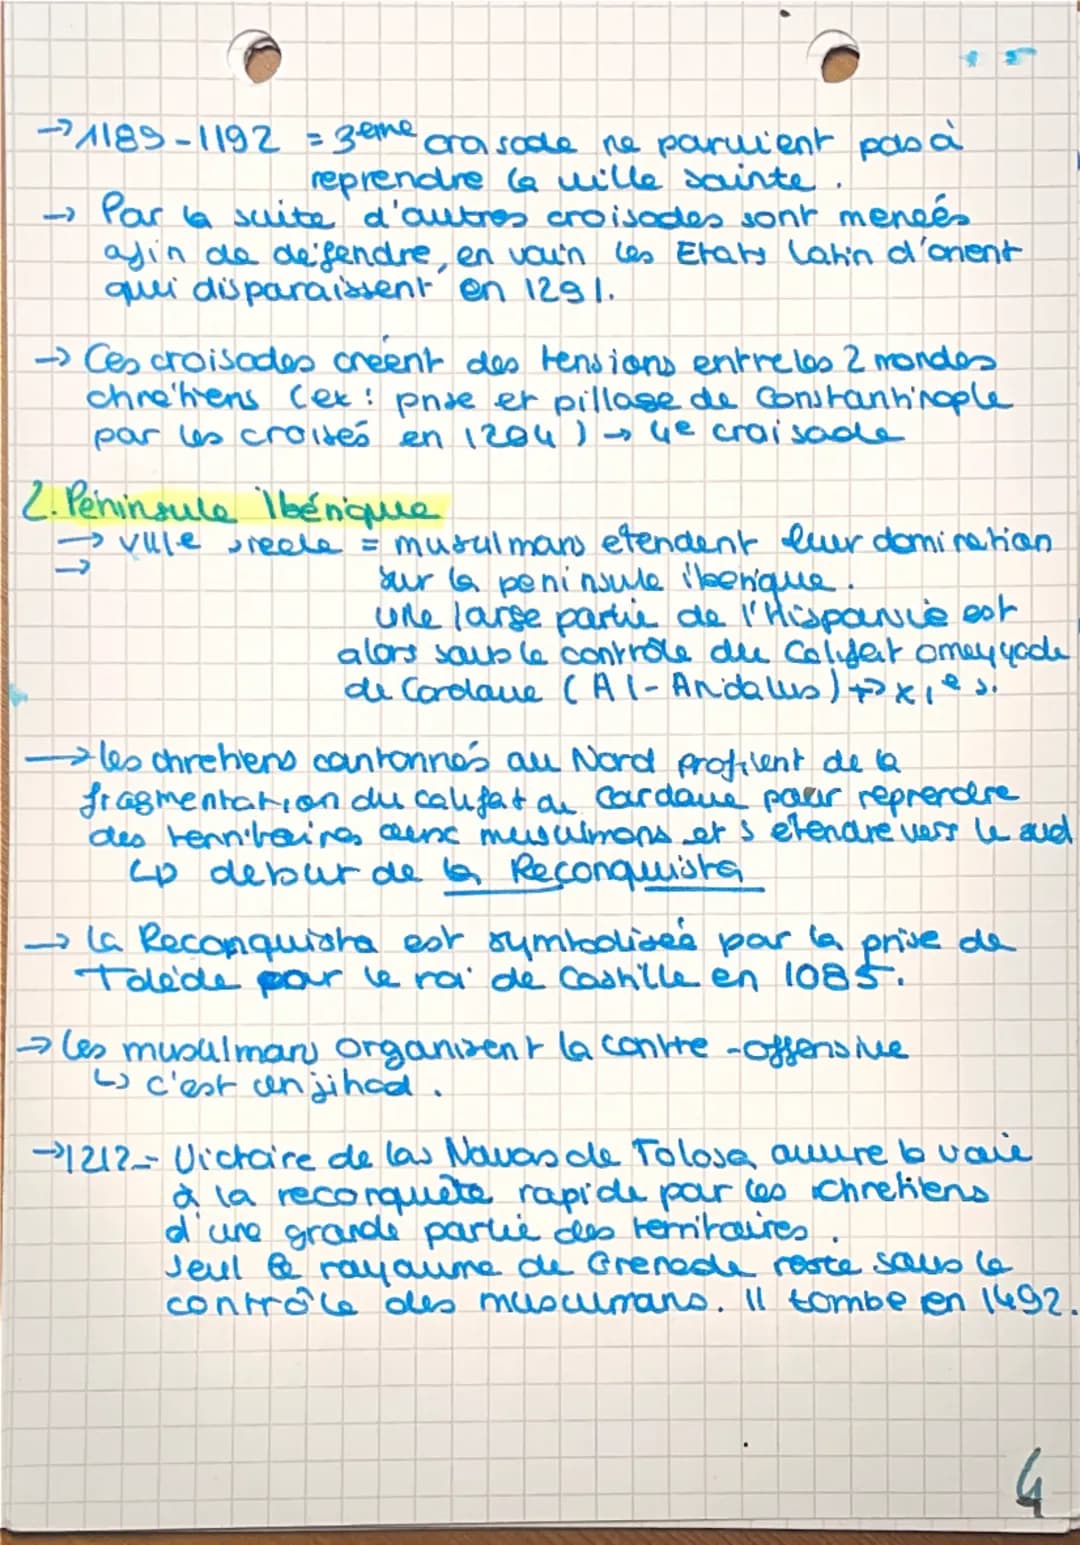 → 1189-1192 = 3eme croisade ne parvient pas à
reprendre la ville sainte.
→ Par la suite d'autres croisades sont meneés
afin de défendre, en vain les Etats latin d'orient
qui disparaissent en 1291.
→ Ces croisades créent des tensions entre les 2 mondes
chrétiens (ex: prise et pillage de Constantinople
par les croisés en 1204) → 4e croisade
2. Péninsule Ibérique
→ VIIIe siecle = musulmans etendent leur domination
→
sur la peninsule iberique.
une large partie de l'Hispanie est
alors sous le contrôle du Califat omeyyade
de Cordoue (Al-Andalus) → XIe s.
→ les chretiens cantonnés au Nord profitent de la
fragmentation du califat de Cordoue pour reprendre
des territoires aux musulmans et s'etendre vers le sud
↳ debut de la Reconquista
→ la Reconquista est symboliseé par la prise de
Tolède par le roi de Castille en 1085.
→ les musulmans organisent la contre-offensive
↳ c'est un jihad.
→ 1212 - Victoire de las Navas de Tolosa ouvre la voie
à la reconquête rapide par les chretiens
d'une grande partie des territoires.
Seul le royaume de Grenade reste sous le
contrôle des musulmans. Il tombe en 1492.
4